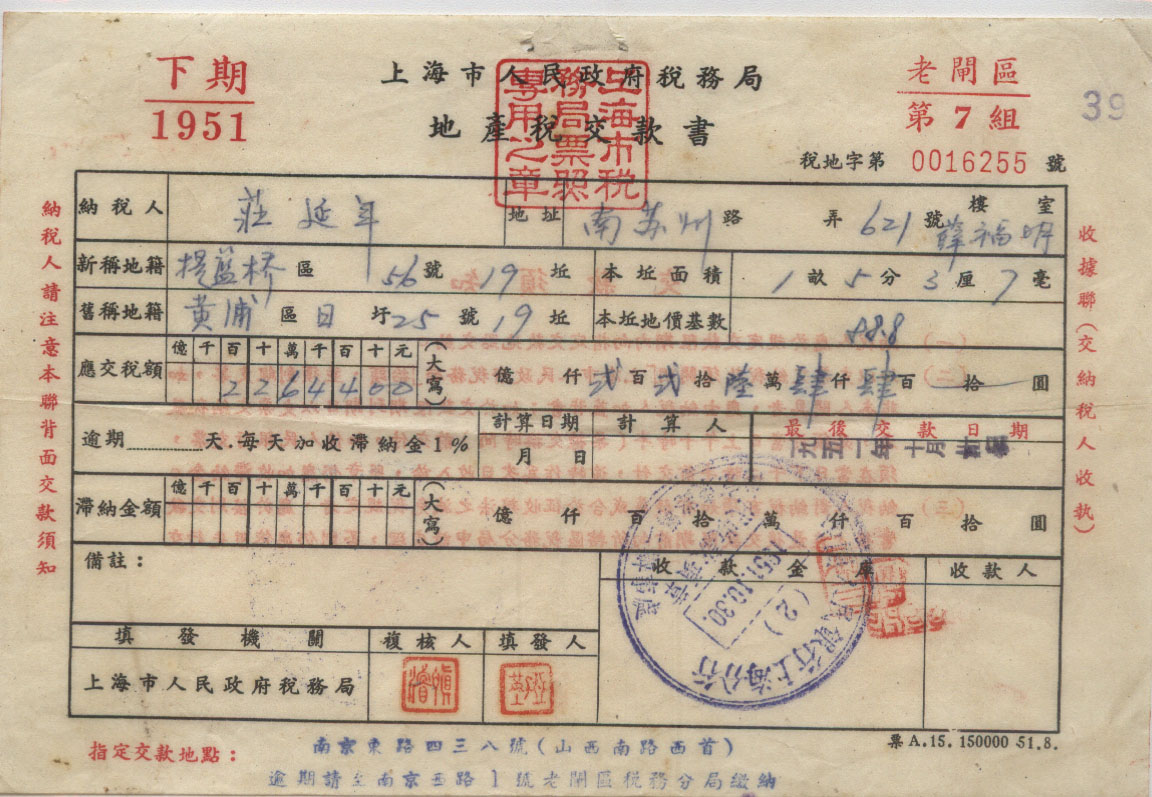 下期
1951
上海市人民政府稅務局
地產稅交款書
上海市稅務局票照專用之章
老閘區
第7組
39
稅地字第 0016255 號
納稅人請注意本聯背面交款須知
收據聯(交納稅人收執)
納稅人 莊延年 地址 南苏州路 弄 621號 樓 室 薛福明
新稱地籍 提籃桥區 56號 19坵 本坵面積 1畝5分3厘7毫
舊稱地籍 黃浦區日圩25號19坵 本坵地價基數 888
應交稅額 億千百十萬千百十元 (大寫) 億 仟 弍百弍拾陸萬肆仟肆百 拾 圓
2264400
逾期 天,每天加收滯納金1% 計算日期 計算人 最後交款日期
月 日 一九五一年十月
滯納金額 億千百十萬千百十元 (大寫) 億 仟 百 拾 萬 仟 百 拾 圓
備註:
收款金庫 收款人
1951.10.30
(2)
銀行上海分行
填發機關 複核人 填發人
上海市人民政府稅務局
票A.15. 150000 51.8.
指定交款地點: 南京東路四三八號(山西南路西首)
逾期請至南京西路1號老閘區稅務分局繳納